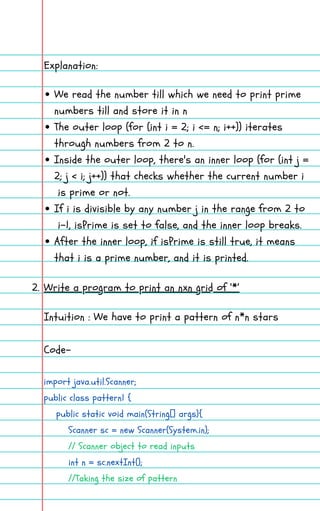 Explanation:
• We read the number till which we need to print prime
numbers till and store it in n
• The outer loop (for (int i = 2; i <= n; i++)) iterates
through numbers from 2 to n.
• Inside the outer loop, there's an inner loop (for (int j =
2; j < i; j++)) that checks whether the current number i
is prime or not.
• If i is divisible by any number j in the range from 2 to
i-1, isPrime is set to false, and the inner loop breaks.
• After the inner loop, if isPrime is still true, it means
that i is a prime number, and it is printed.
2. Write a program to print an nxn grid of '*'
Intuition : We have to print a pattern of n*n stars
Code-
import java.util.Scanner;
public class pattern1 {
public static void main(String[] args){
Scanner sc = new Scanner(System.in);
// Scanner object to read inputs
int n = sc.nextInt();
//Taking the size of pattern